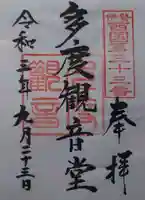 西国三十三番
奉拝
多度観音堂
令和三年九月二十三日